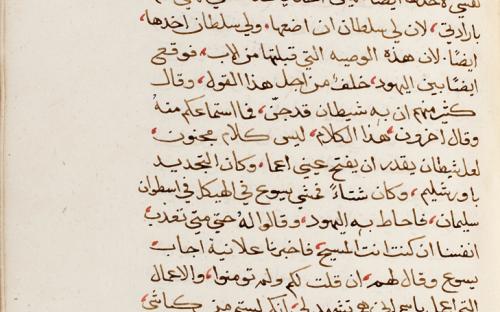 بارادتي، لان لي سلطان ان اضعها، ولي سلطان اخدها
ايضًا. لان هذه الوصيه التي قبلتها من الاب، فوقع
ايضًا بين اليهود، خلف من اجل هذا القول، وقال
كثير منهم ان به شيطان قد جن، فما استماعكم منه
وقال اخرون، هذا الكلام، ليس كلام مجنون،
لعل شيطان يقدر ان يفتح عيني اعما، وكان التجديد
باورشليم، وكان شتاءً فمشي يسوع في الهيكل في اسطوان
سليمان، فاحاط به اليهود، وقالوا له حتي متي تعدب
انفسنا ان كنت انت المسيح فاخبرنا علانية اجاب
يسوع وقال لهم، ان قلت لكم ولم تومنوا، والاعمال
التي اعمل باسم ابي هي تشهد لي، لكنكم لستم من كباشي،